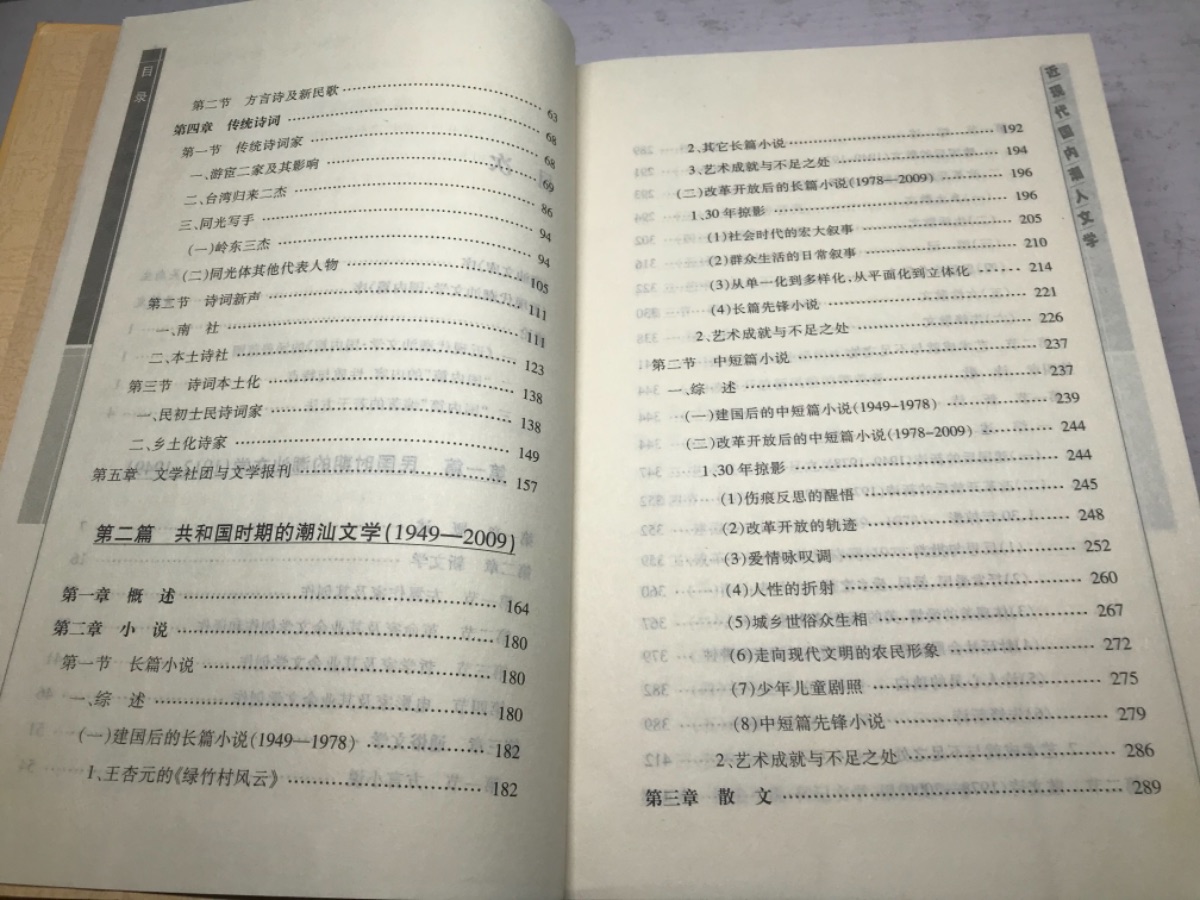 目录
第二节 方言诗及新民歌 …… 63
第四章 传统诗词 …… 68
第一节 传统诗词家 …… 68
一、游宦二家及其影响 …… 69
二、台湾归来二杰 …… 86
三、同光写手 …… 94
(一)岭东三杰 …… 94
(二)同光体其他代表人物 …… 105
第二节 诗词新声 …… 111
一、南社 …… 111
二、本土诗社 …… 123
第三节 诗词本土化 …… 138
一、民初士民诗词家 …… 138
二、乡土化诗家 …… 149
第五章 文学社团与文学报刊 …… 157
第二篇 共和国时期的潮汕文学(1949—2009)
第一章 概述 …… 164
第二章 小说 …… 180
第一节 长篇小说 …… 180
一、综述 …… 180
(一)建国后的长篇小说(1949—1978) …… 182
1、王杏元的《绿竹村风云》 …… 182
近现代国内潮人文学
2、其它长篇小说 …… 192
3、艺术成就与不足之处 …… 194
(二)改革开放后的长篇小说(1978—2009) …… 196
1、30年掠影 …… 196
(1)社会时代的宏大叙事 …… 205
(2)群众生活的日常叙事 …… 210
(3)从单一化到多样化,从平面化到立体化 …… 214
(4)长篇先锋小说 …… 221
2、艺术成就与不足之处 …… 226
第二节 中短篇小说 …… 237
一、综述 …… 237
(一)建国后的中短篇小说(1949-1978) …… 239
(二)改革开放后的中短篇小说(1978-2009) …… 244
1、30年掠影 …… 244
(1)伤痕反思的醒悟 …… 245
(2)改革开放的轨迹 …… 248
(3)爱情咏叹调 …… 252
(4)人性的折射 …… 260
(5)城乡世俗众生相 …… 267
(6)走向现代文明的农民形象 …… 272
(7)少年儿童剧照 …… 275
(8)中短篇先锋小说 …… 279
2、艺术成就与不足之处 …… 286
第三章 散文 …… 289